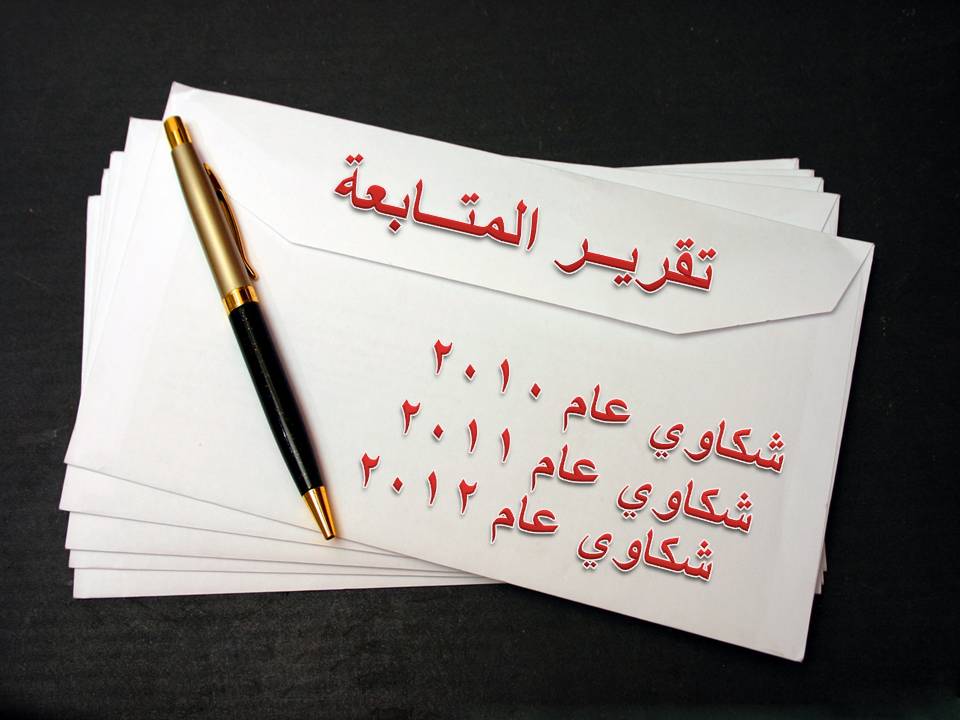 تقريــر المتــابعة
شكاوي عام ٢٠١٠
شكاوي عام ٢٠١١
شكاوي عام ٢٠١٢